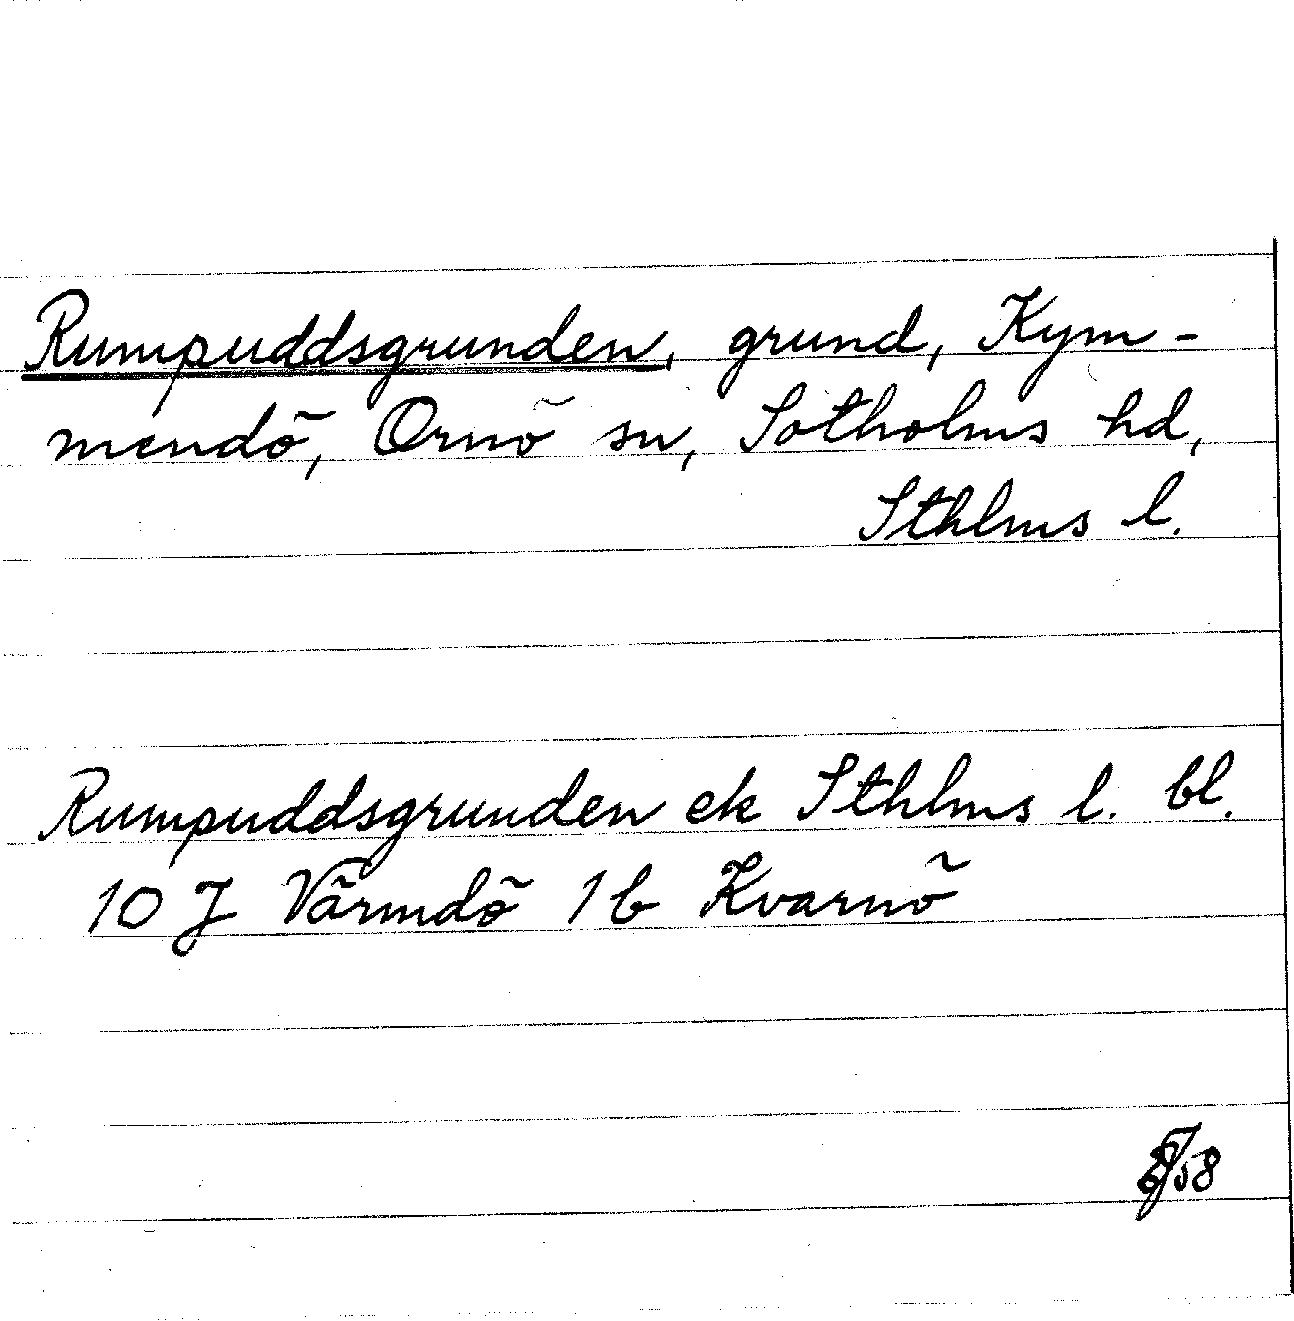 Rumpuddsgrunden, grund, Kym-
mendö, Ornö sn, Sotholms hd,
Sthlms l.
Rumpuddsgrunden ek Sthlms l. bl.
10 J Värmdö 1 b Kvarnö
58